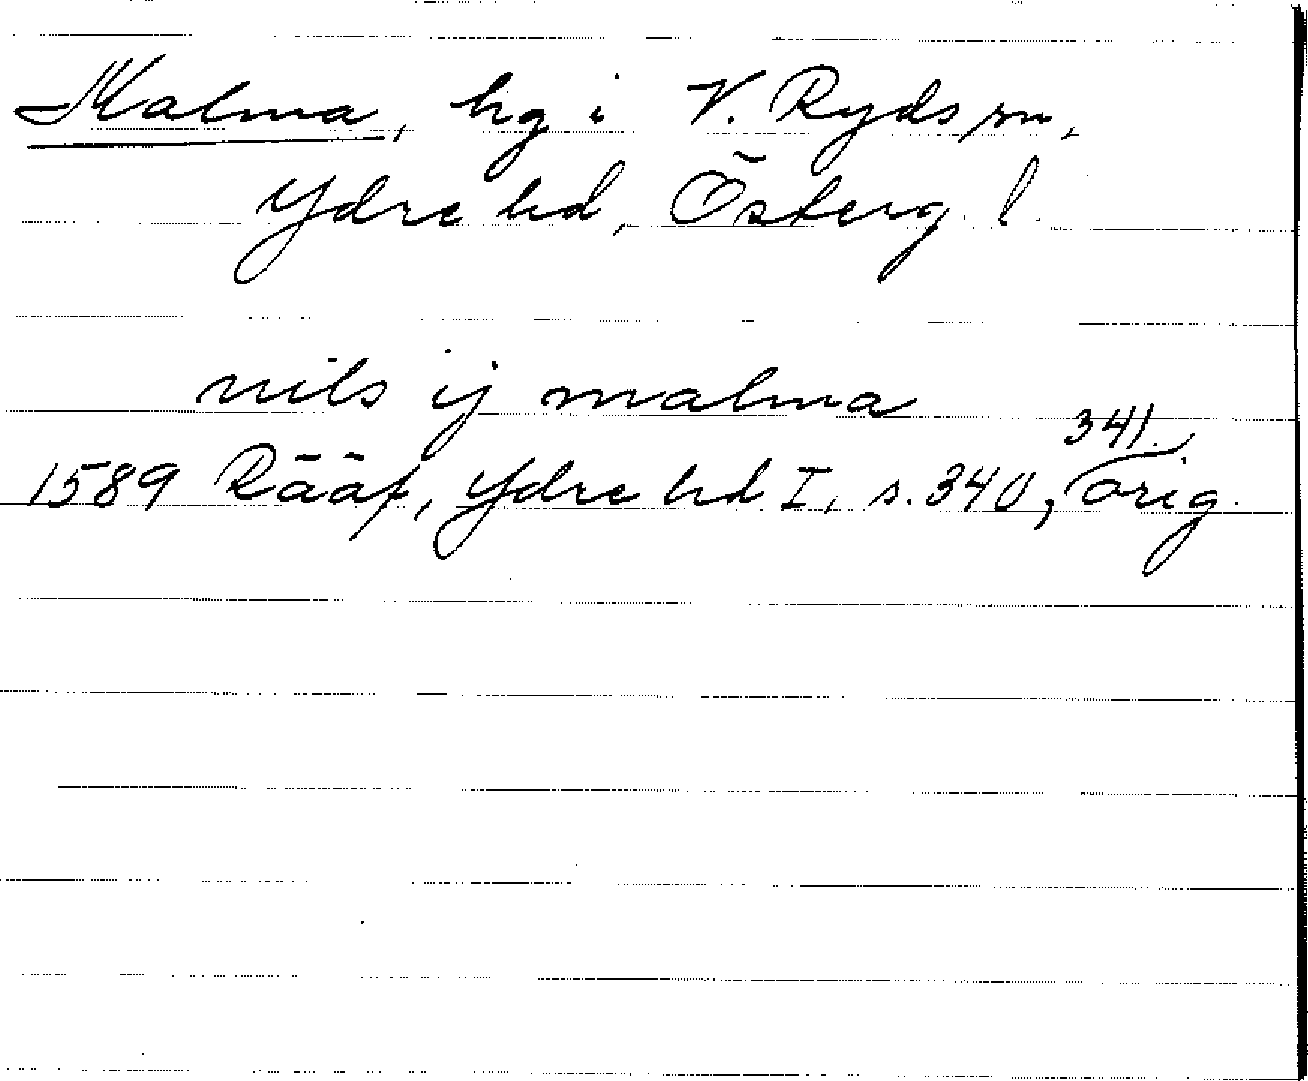 Malma, hg i V. Ryds sn,
Ydre hd, Österg. l.
nils ij malma
341.
1589 Rääf, Ydre hd I, s. 340, orig.